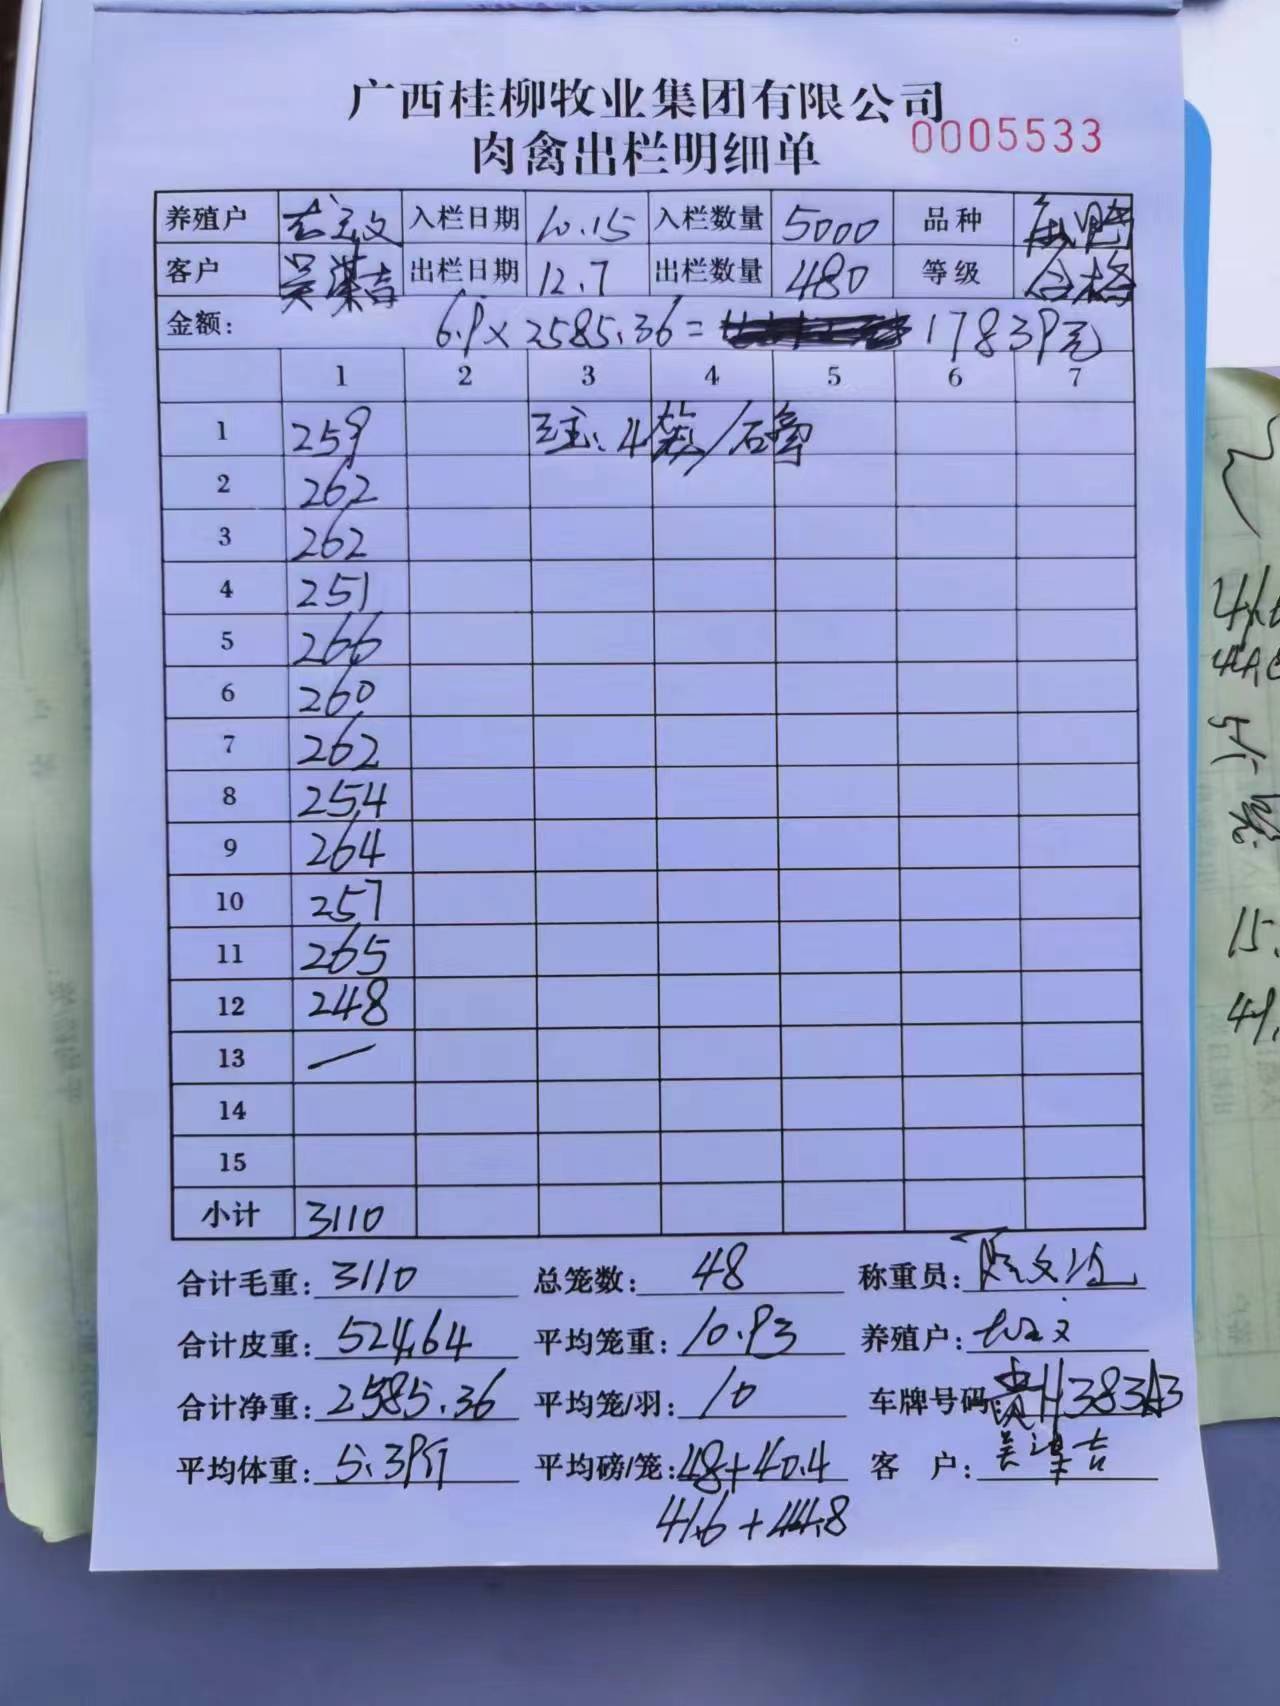 广西桂柳牧业集团有限公司
肉禽出栏明细单 0005533
养殖户 入栏日期 10.15 入栏数量 5000 品种
客户 吴谋吉 出栏日期 12.7 出栏数量 480 等级 合格
金额: 6.9×2585.36= 17839元
1 2 3 4 5 6 7
1 259 注:4笼/磅
2 262
3 262
4 251
5 266
6 260
7 262
8 254
9 264
10 257
11 265
12 248
13 —
14
15
小计 3110
合计毛重: 3110 总笼数: 48 称重员:
合计皮重: 524.64 平均笼重: 10.93 养殖户:
合计净重: 2585.36 平均笼/羽: 10 车牌号码:
平均体重: 5.39斤 平均磅/笼: 48+40.4 客 户: 吴谋吉
41.6+44.8